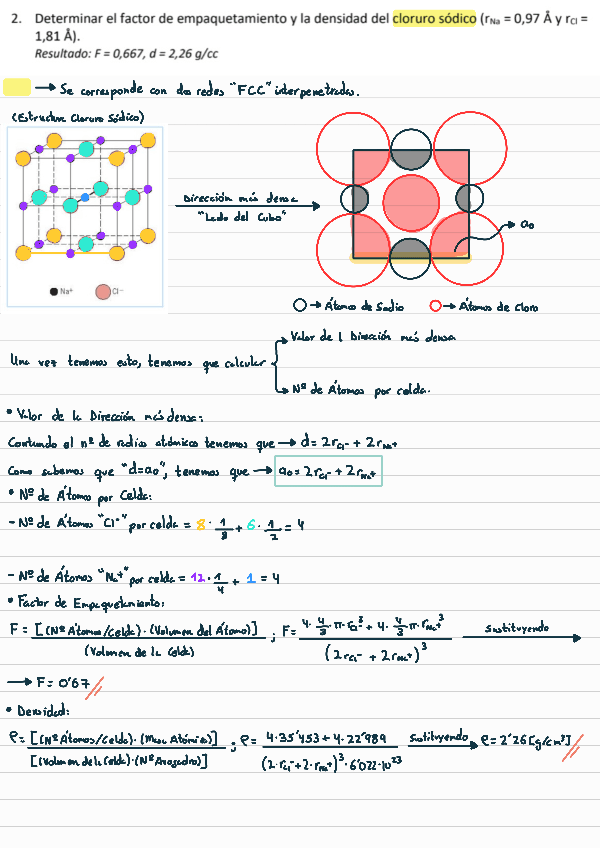 2. Determinar el factor de empaquetamiento y la densidad del cloruro sódico (rNa = 0,97 Å y rCl =
1,81 Å).
Resultado: F = 0,667, d = 2,26 g/cc
→ Se corresponde con dos redes "FCC" interpenetradas.
(Estructura Cloruro Sódico)
Dirección más densa
"Lado del Cubo"
a₀
Na⁺ Cl⁻
○→ Átomos de Sodio ○→ Átomos de Cloro
Una vez tenemos esto, tenemos que calcular
→ Valor de la Dirección más densa
→ Nº de Átomos por celda.
• Valor de la Dirección más densa:
Contando el nº de radios atómicos tenemos que → d = 2rCl⁻ + 2rNa⁺
Como sabemos que "d=a₀", tenemos que → a₀ = 2rCl⁻ + 2rNa⁺
• Nº de Átomos por Celda:
- Nº de Átomos "Cl⁻" por celda = 8 · 1/8 + 6 · 1/2 = 4
- Nº de Átomos "Na⁺" por celda = 12 · 1/4 + 1 = 4
• Factor de Empaquetamiento:
F = [(Nº Átomos/Celda) · (Volumen del Átomo)] / (Volumen de la Celda) ; F = (4 · 4/3 · π · rCl³ + 4 · 4/3 π · rNa⁺³) / (2rCl⁻ + 2rNa⁺)³ Sustituyendo →
→ F = 0'67
• Densidad:
ρ = [(Nº Átomos/Celda) · (Masa Atómica)] / [(Volumen de la Celda) · (Nº Avogadro)] ; ρ = (4 · 35'453 + 4 · 22'989) / ((2 · rCl⁻ + 2 · rNa⁺)³ · 6'022 · 10²³) Sustituyendo → ρ = 2'26 [g/cm³]